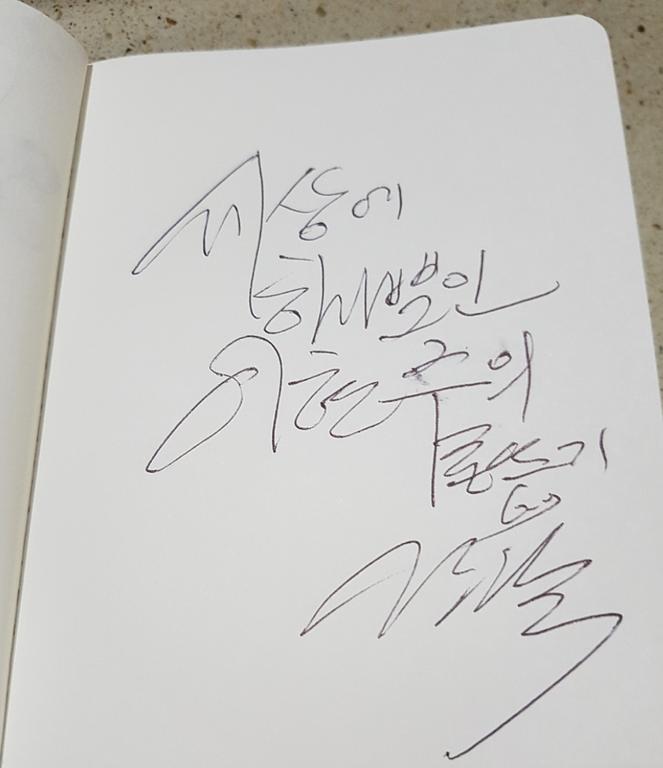 세상에
하나뿐인
이현주의
글쓰기